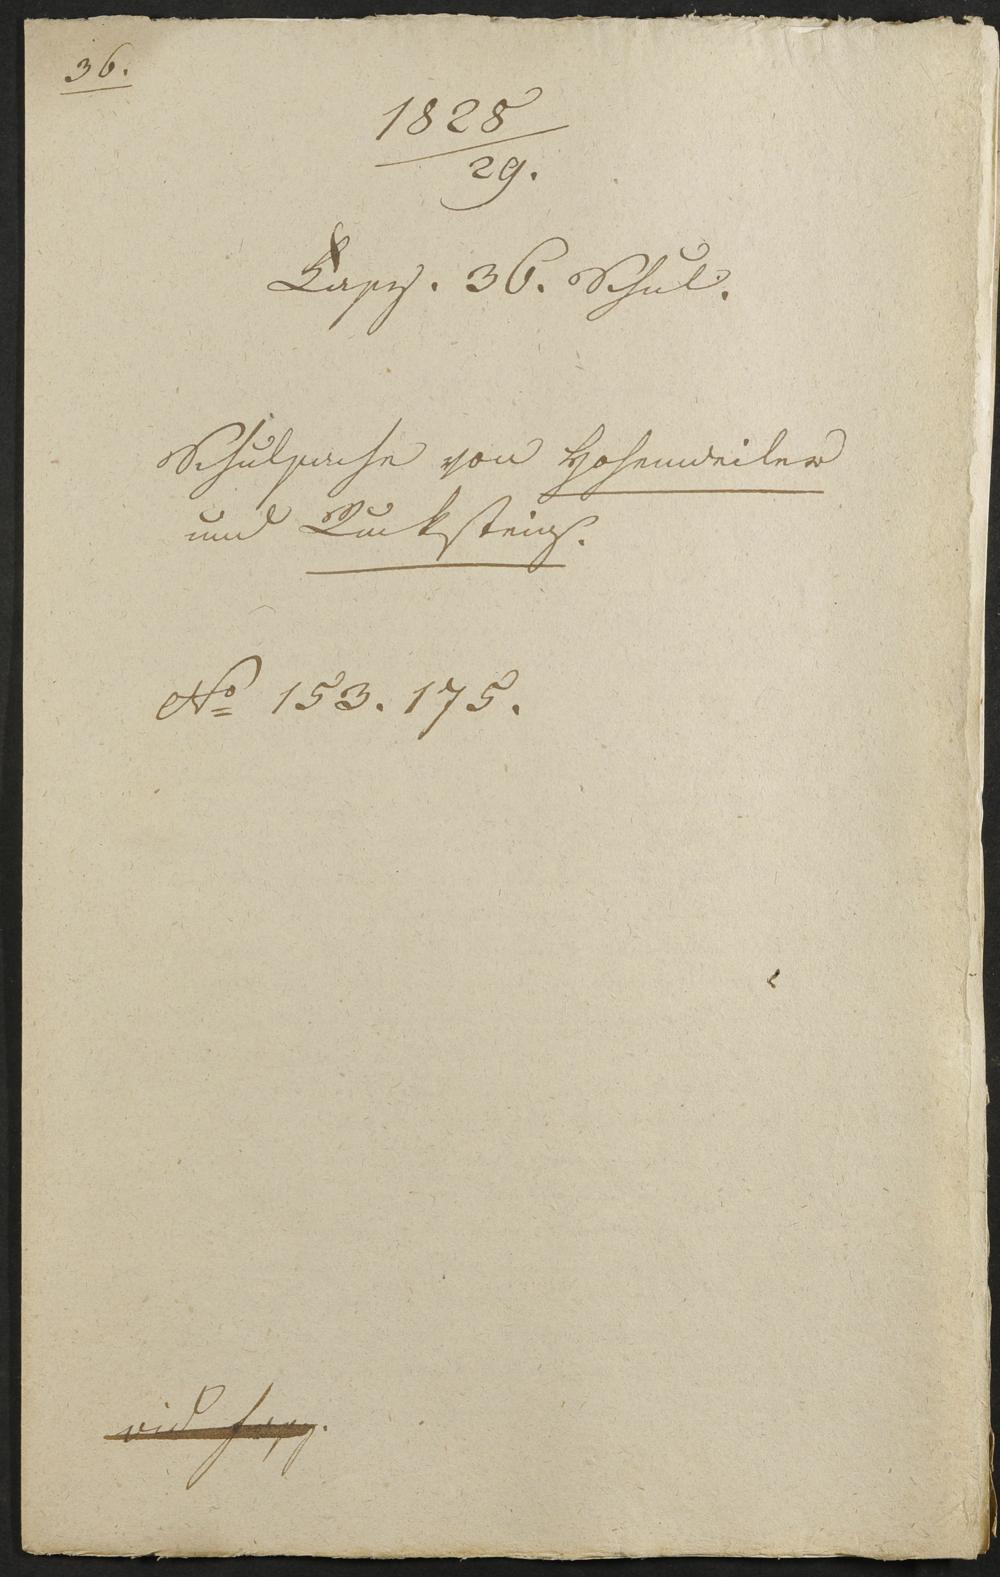 36.
1828
29.
Fasz. 36. Schul.
Schulsache von Hohenweiler
und Rucksteig.
No 153. 175.
vid